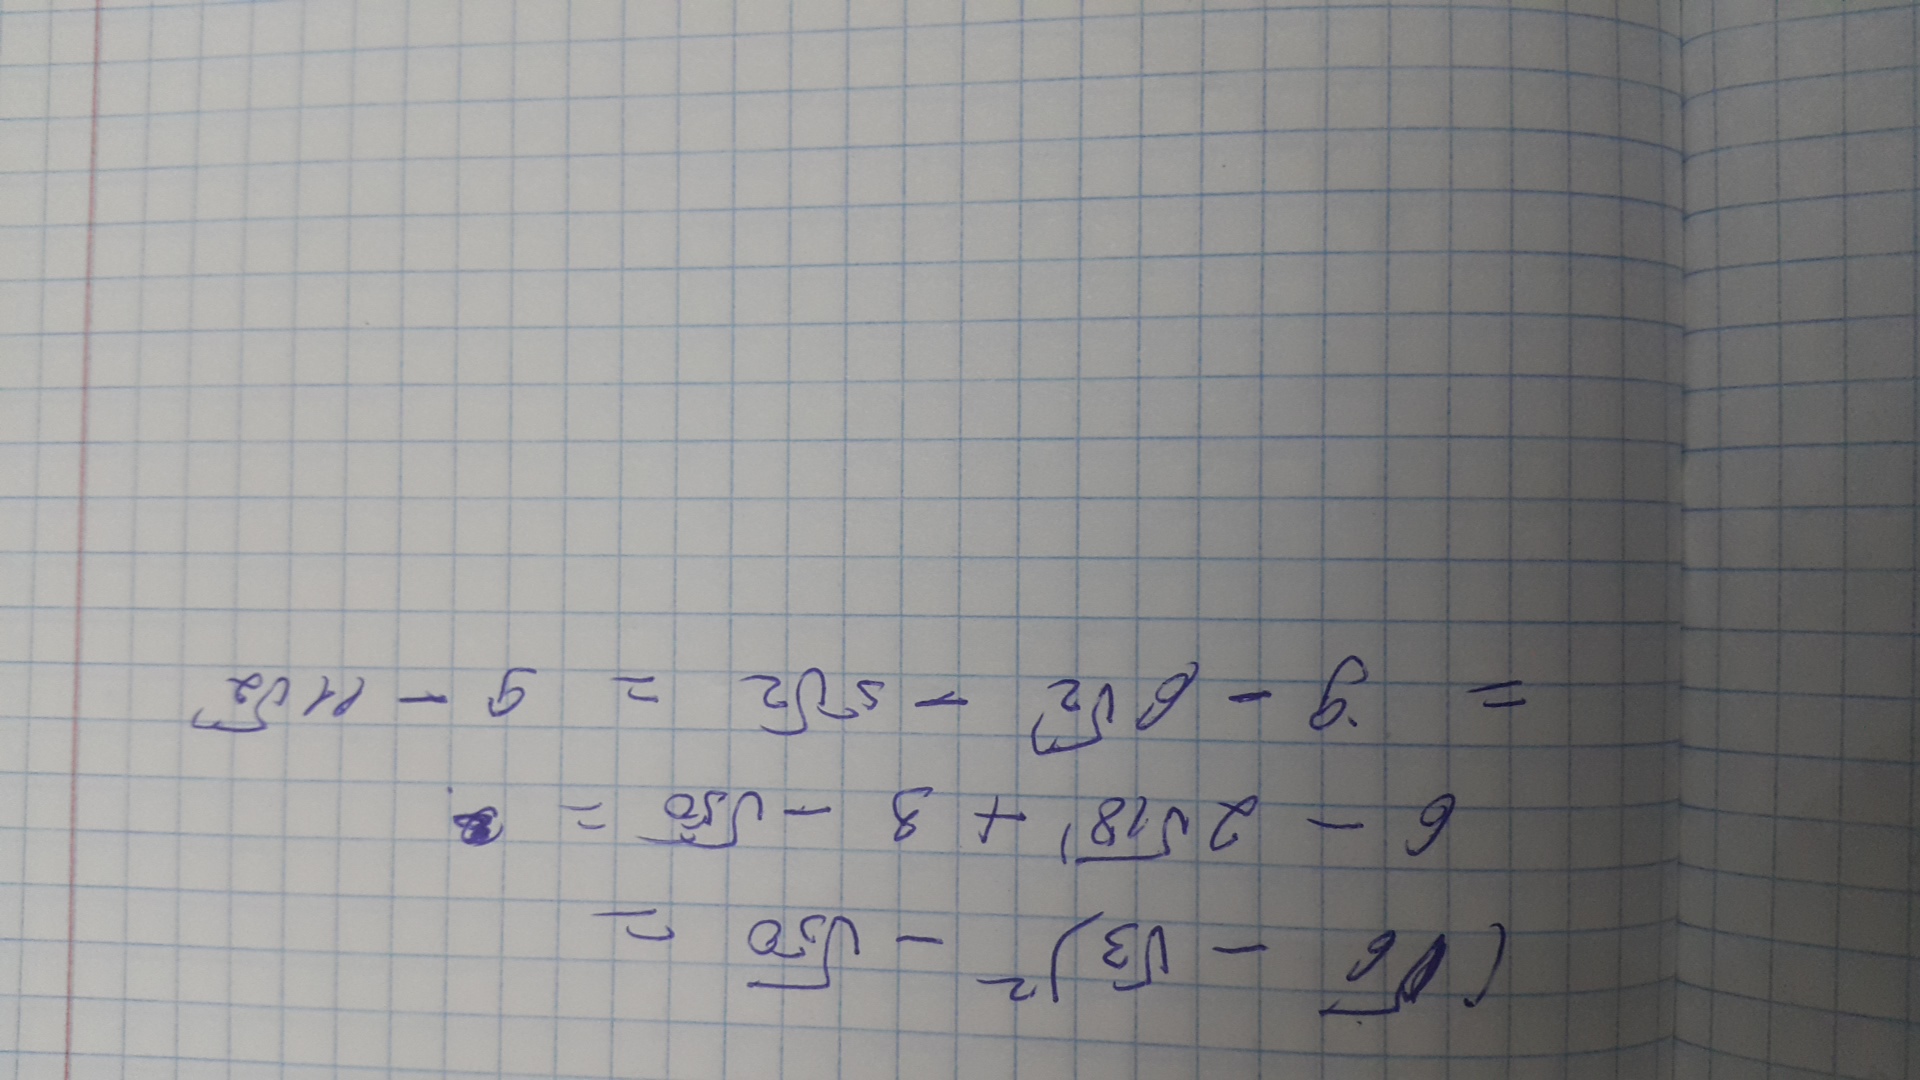 (√6 - √3)² - √50 =
6 - 2√18 + 3 - √50 =
= 9 - 6√2 - 5√2 = 9 - 11√2